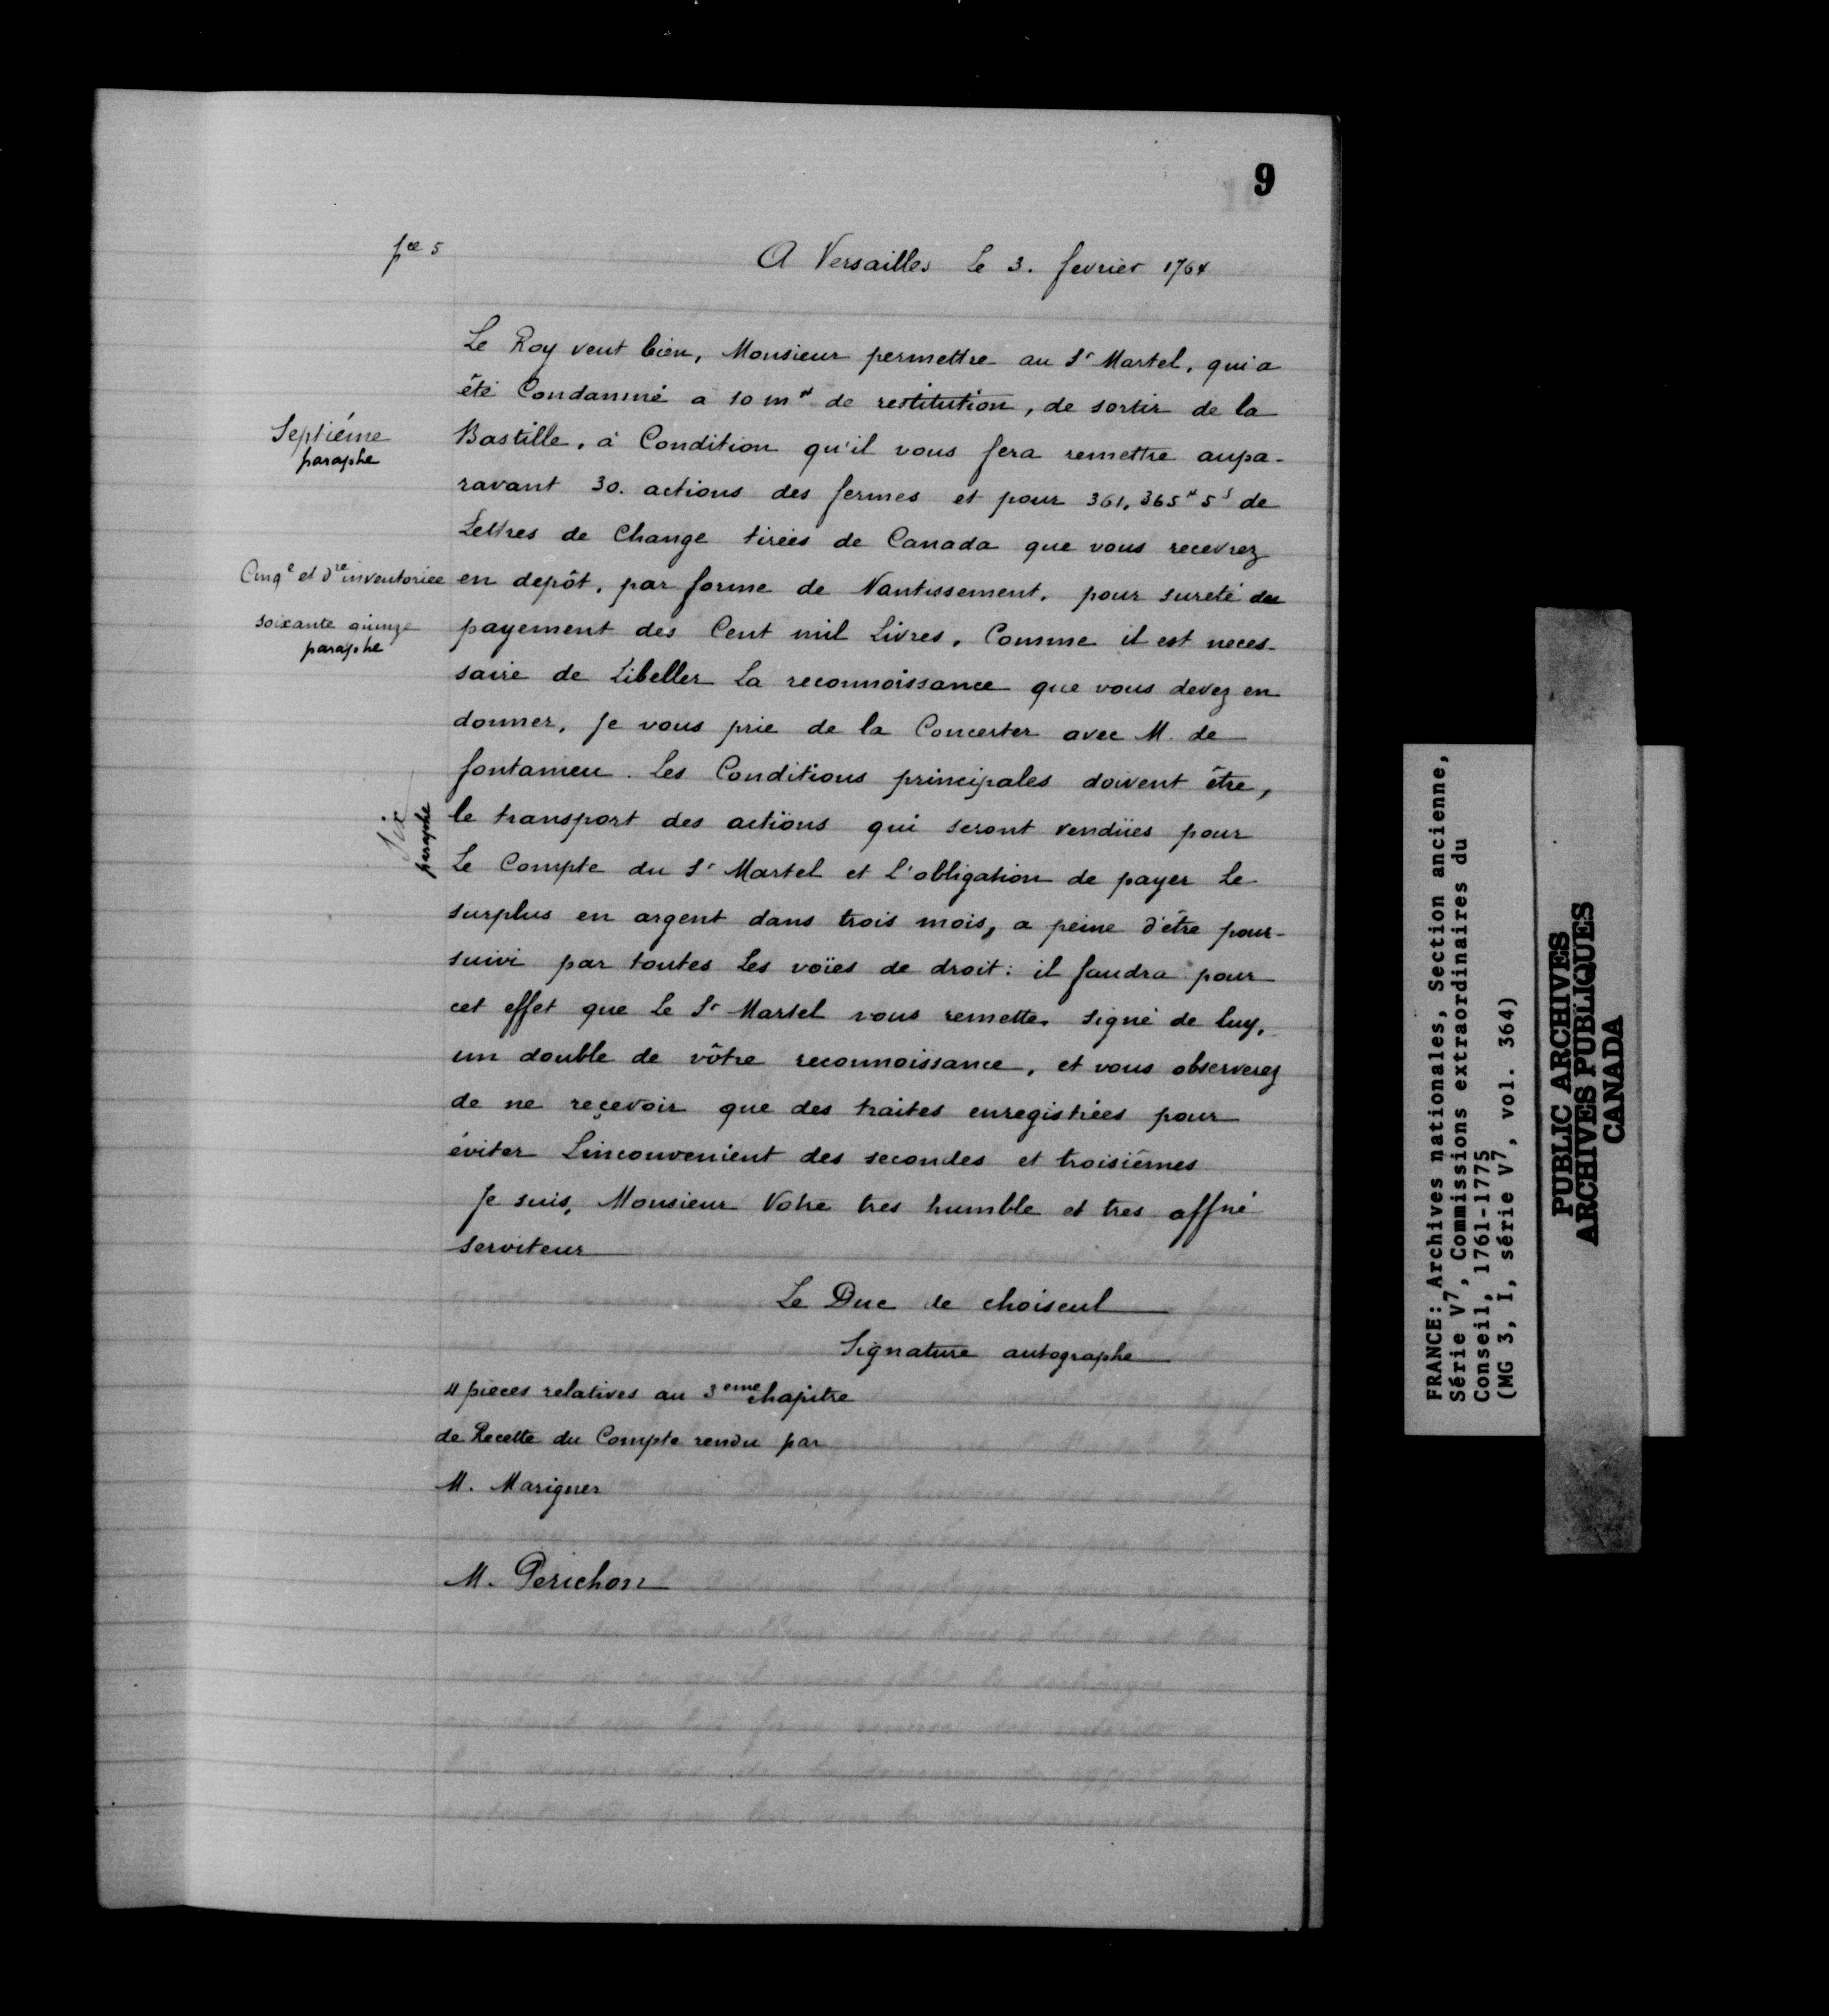 9
pce 5
A Versailles Le 3. fevrier 1764
Le Roy veut bien, Monsieur permettre au Sr Martel, qui a
été Condamné a 10 m# de restitution, de sortir de la
Septiéme
paraphe
Bastille, à Condition qu'il vous fera remettre aupa-
ravant 30. actions des fermes et pour 361,365# 5s de
Lettres de Change tirées de Canada que vous recevrez
Cinqe et Dre inventoriee
en depôt, par forme de Nantissement, pour sureté du
soixante quinze
paraphe
payement des Cent mil Livres, Comme il est neces-
saire de Libeller La reconnoissance que vous devez en
donner, Je vous prie de la Concerter avec M. de
fontanieu. Les Conditions principales doivent être,
Six
paraphe
le transport des actïons qui seront vendües pour
Le Compte du Sr Martel et l'obligation de payer Le
surplus en argent dans trois mois, a peine d'être pour-
suivi par toutes Les voïes de droit: il faudra pour
cet effet que Le Sr Martel vous remette, signé de luy,
un double de vôtre reconnoissance, et vous observerez
de ne reçevoir que des traites enregistrées pour
éviter Linconvenient des secondes et troisiêmes
Je suis, Monsieur Votre tres humble et tres affné
serviteur
Le Duc de choiseul
Signature autographe
4 pieces relatives au 3eme chapitre
de Recette du Compte rendu par
M. Marigner
M. Perichon
FRANCE: Archives nationales, Section ancienne,
Série V7, Commissions extraordinaires du
Conseil, 1761-1775
(MG 3, I, série V7, vol. 364)
PUBLIC ARCHIVES
ARCHIVES PUBLIQUES
CANADA